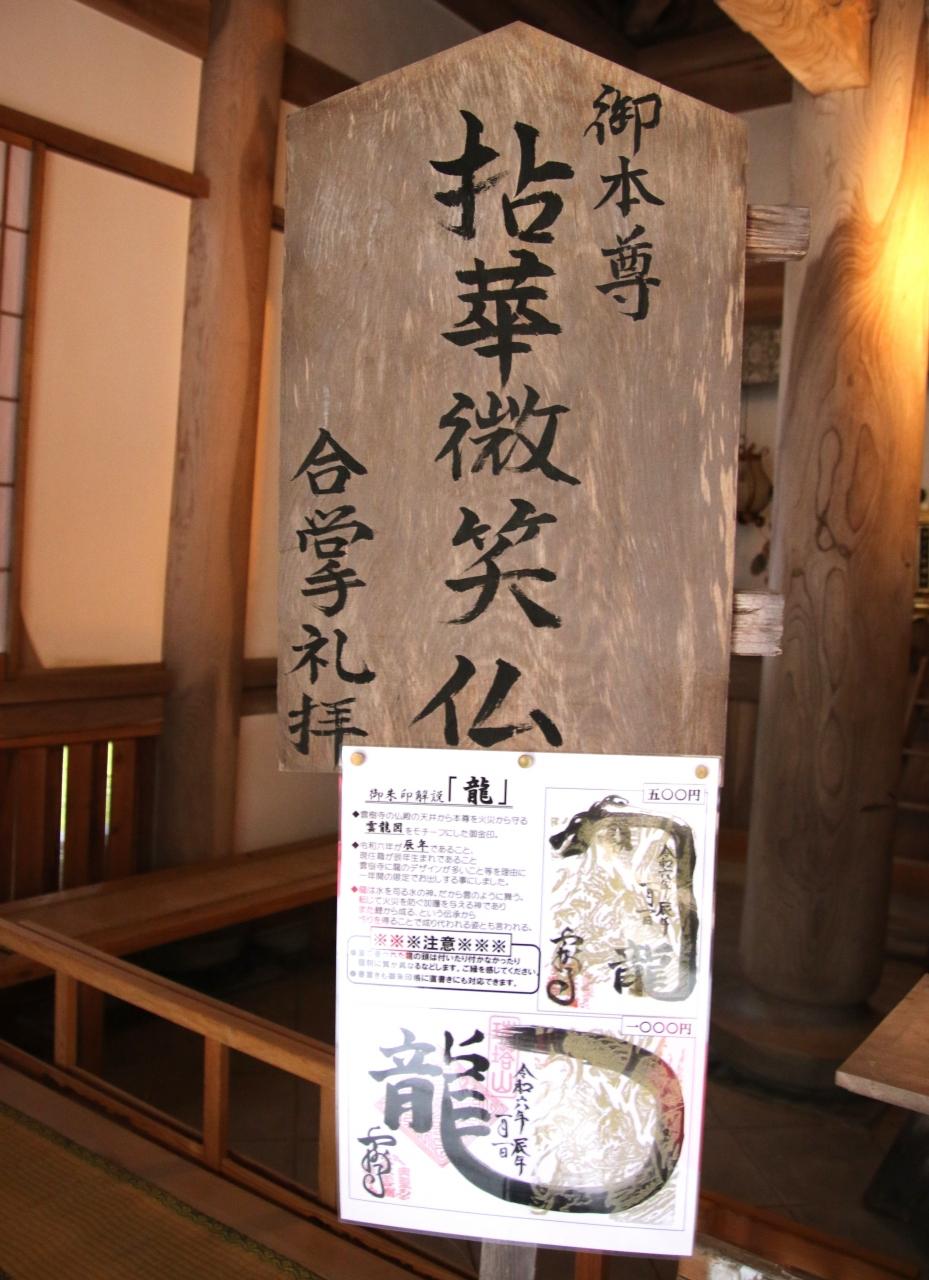 御本尊
拈華微笑仏
合掌礼拝
御朱印解説「龍」
◆雲樹寺の仏殿の天井から本尊を火災から守る
雲龍図をモチーフにした御金印。
◆令和六年が辰年であること、
現住職が辰年生まれであること
雲樹寺に龍のデザインが多いこと等を理由に
一年間の限定でお出しする事にしました。
◆龍は水を司る水の神。だから雲のように舞う。
転じて火災を防ぐ加護を与える神であり
また鯉から成る、という伝承から
を得ることで成り代われる姿とも言われる。
※※※注意※※※
龍の頭は付いたり付かなかったり
個別に質が異なるなどします。ご縁を感じてください。
●書置きも御朱印帳に直書きにも対応できます。
五〇〇円
令和六年辰年
一月一日
龍
一〇〇〇円
瑞塔山
龍
令和六年辰年
一月一日